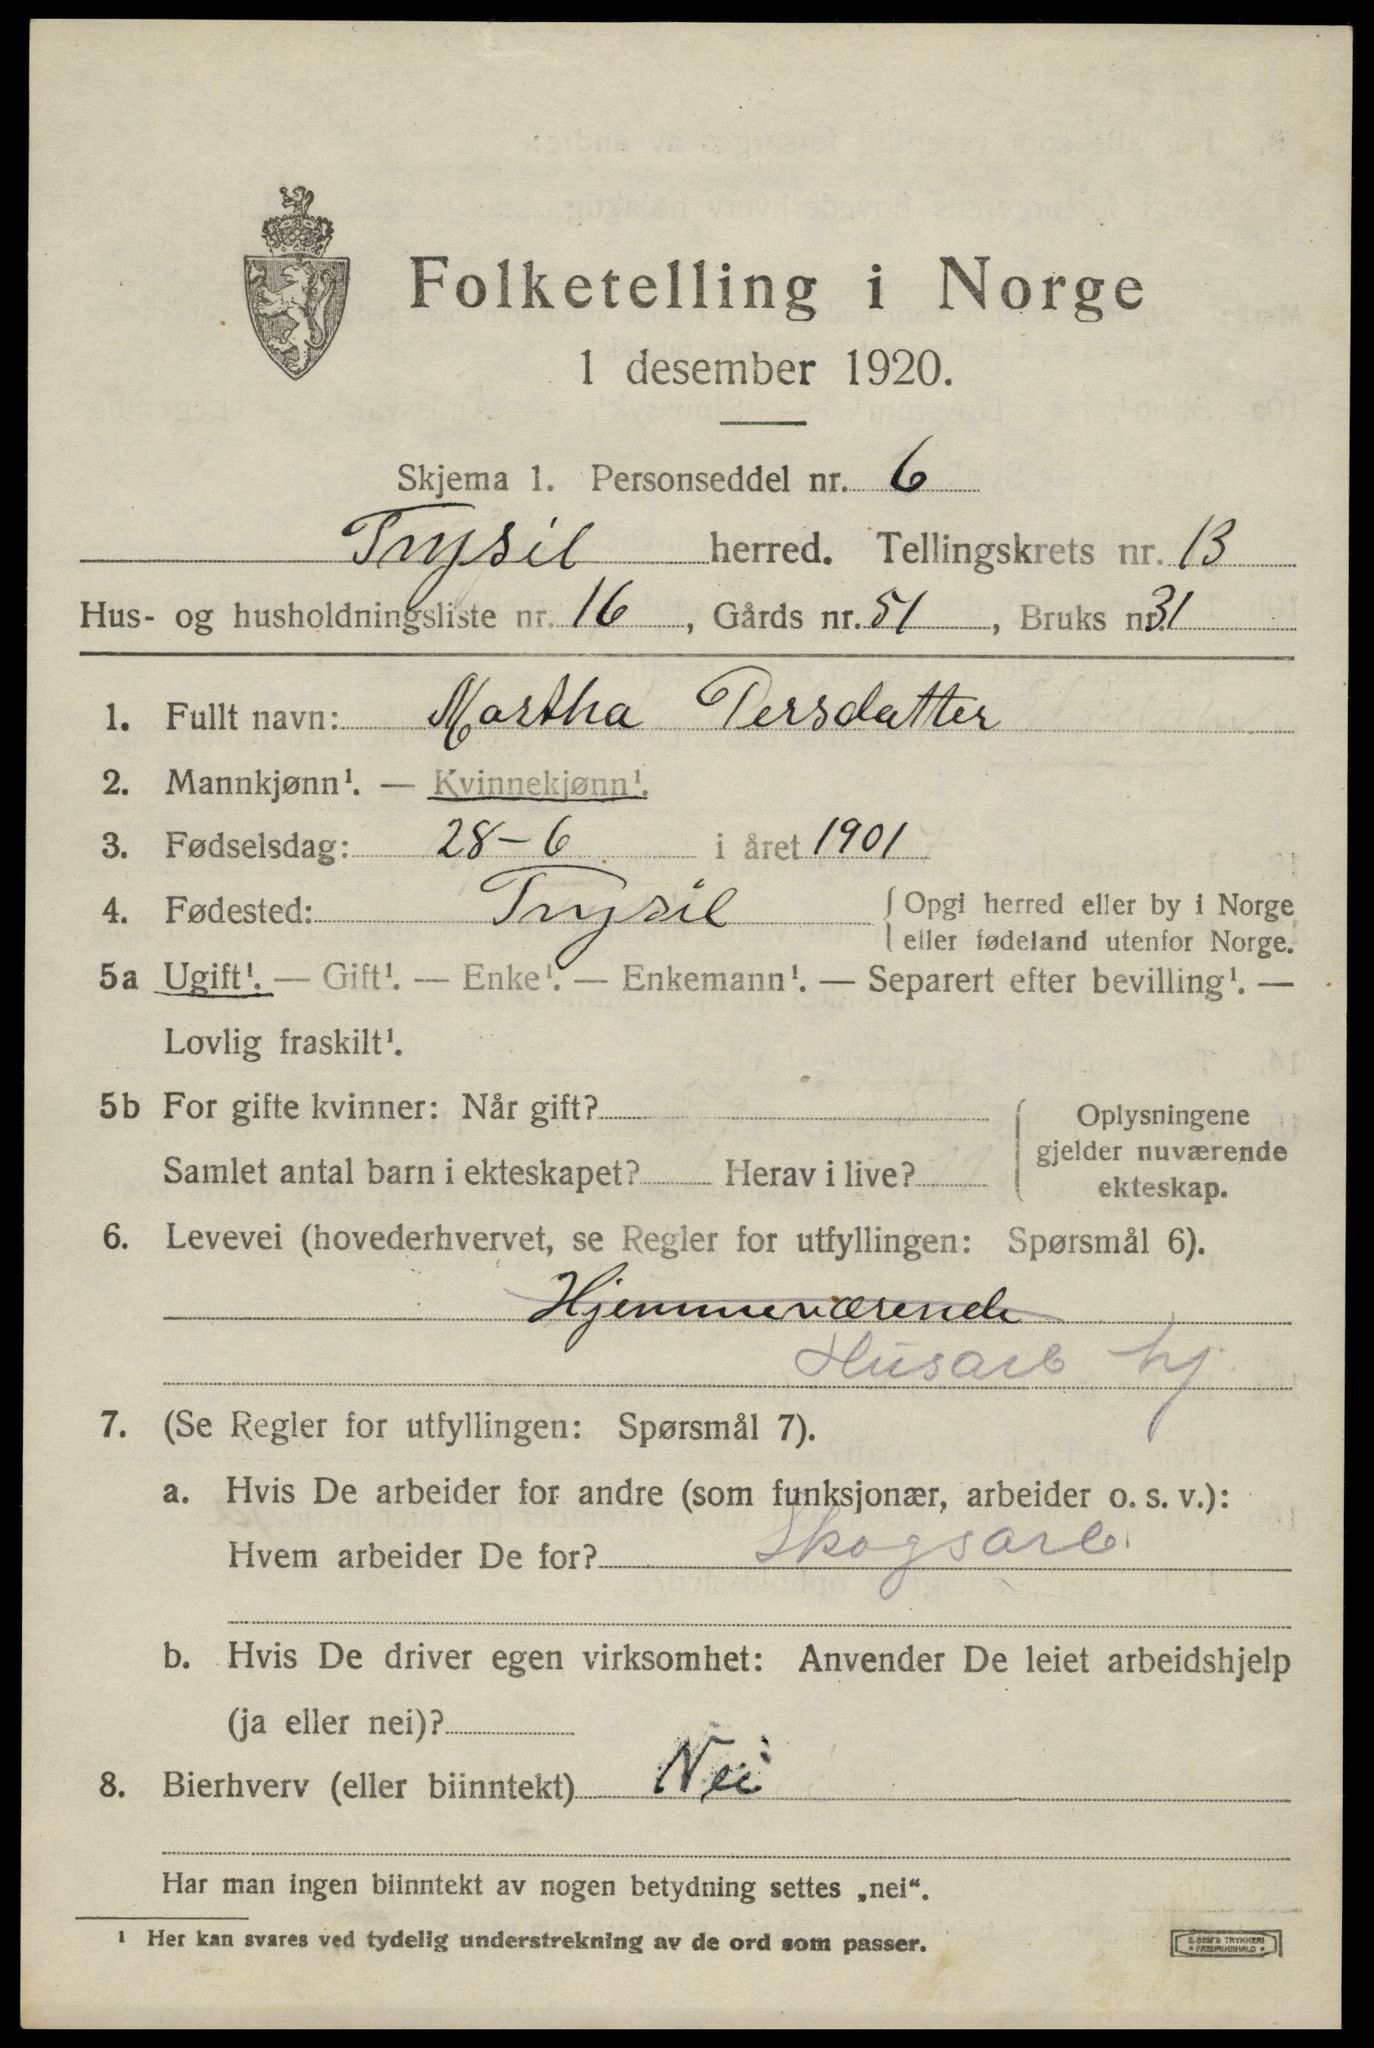 Folketelling i Norge
1 desember 1920.
Skjema 1. Personseddel nr. 6
Trysil herred. Tellingskrets nr. 13
Hus- og husholdningsliste nr. 16, Gårds nr. 51, Bruks nr. 31
1. Fullt navn: Martha Persdatter
2. Mannkjønn¹. — Kvinnekjønn¹.
3. Fødselsdag: 28-6 i året 1901
4. Fødested: Trysil { Opgi herred eller by i Norge
eller fødeland utenfor Norge.
5a Ugift¹. — Gift¹. — Enke¹. — Enkemann¹. — Separert efter bevilling¹. —
Lovlig fraskilt¹.
5b For gifte kvinner: Når gift? { Oplysningene
gjelder nuværende
Samlet antal barn i ekteskapet? Herav i live?
ekteskap.
6. Levevei (hovederhvervet, se Regler for utfyllingen: Spørsmål 6).
Hjemmeværende
Husarb hj.
7. (Se Regler for utfyllingen: Spørsmål 7).
a. Hvis De arbeider for andre (som funksjonær, arbeider o. s. v.):
Hvem arbeider De for? Skogsarb.
b. Hvis De driver egen virksomhet: Anvender De leiet arbeidshjelp
(ja eller nei)?
8. Bierhverv (eller biinntekt) Nei
Har man ingen biinntekt av nogen betydning settes „nei“.
¹ Her kan svares ved tydelig understrekning av de ord som passer.
E. SEM'S TRYKKERI
• FREDRIKSHALD •